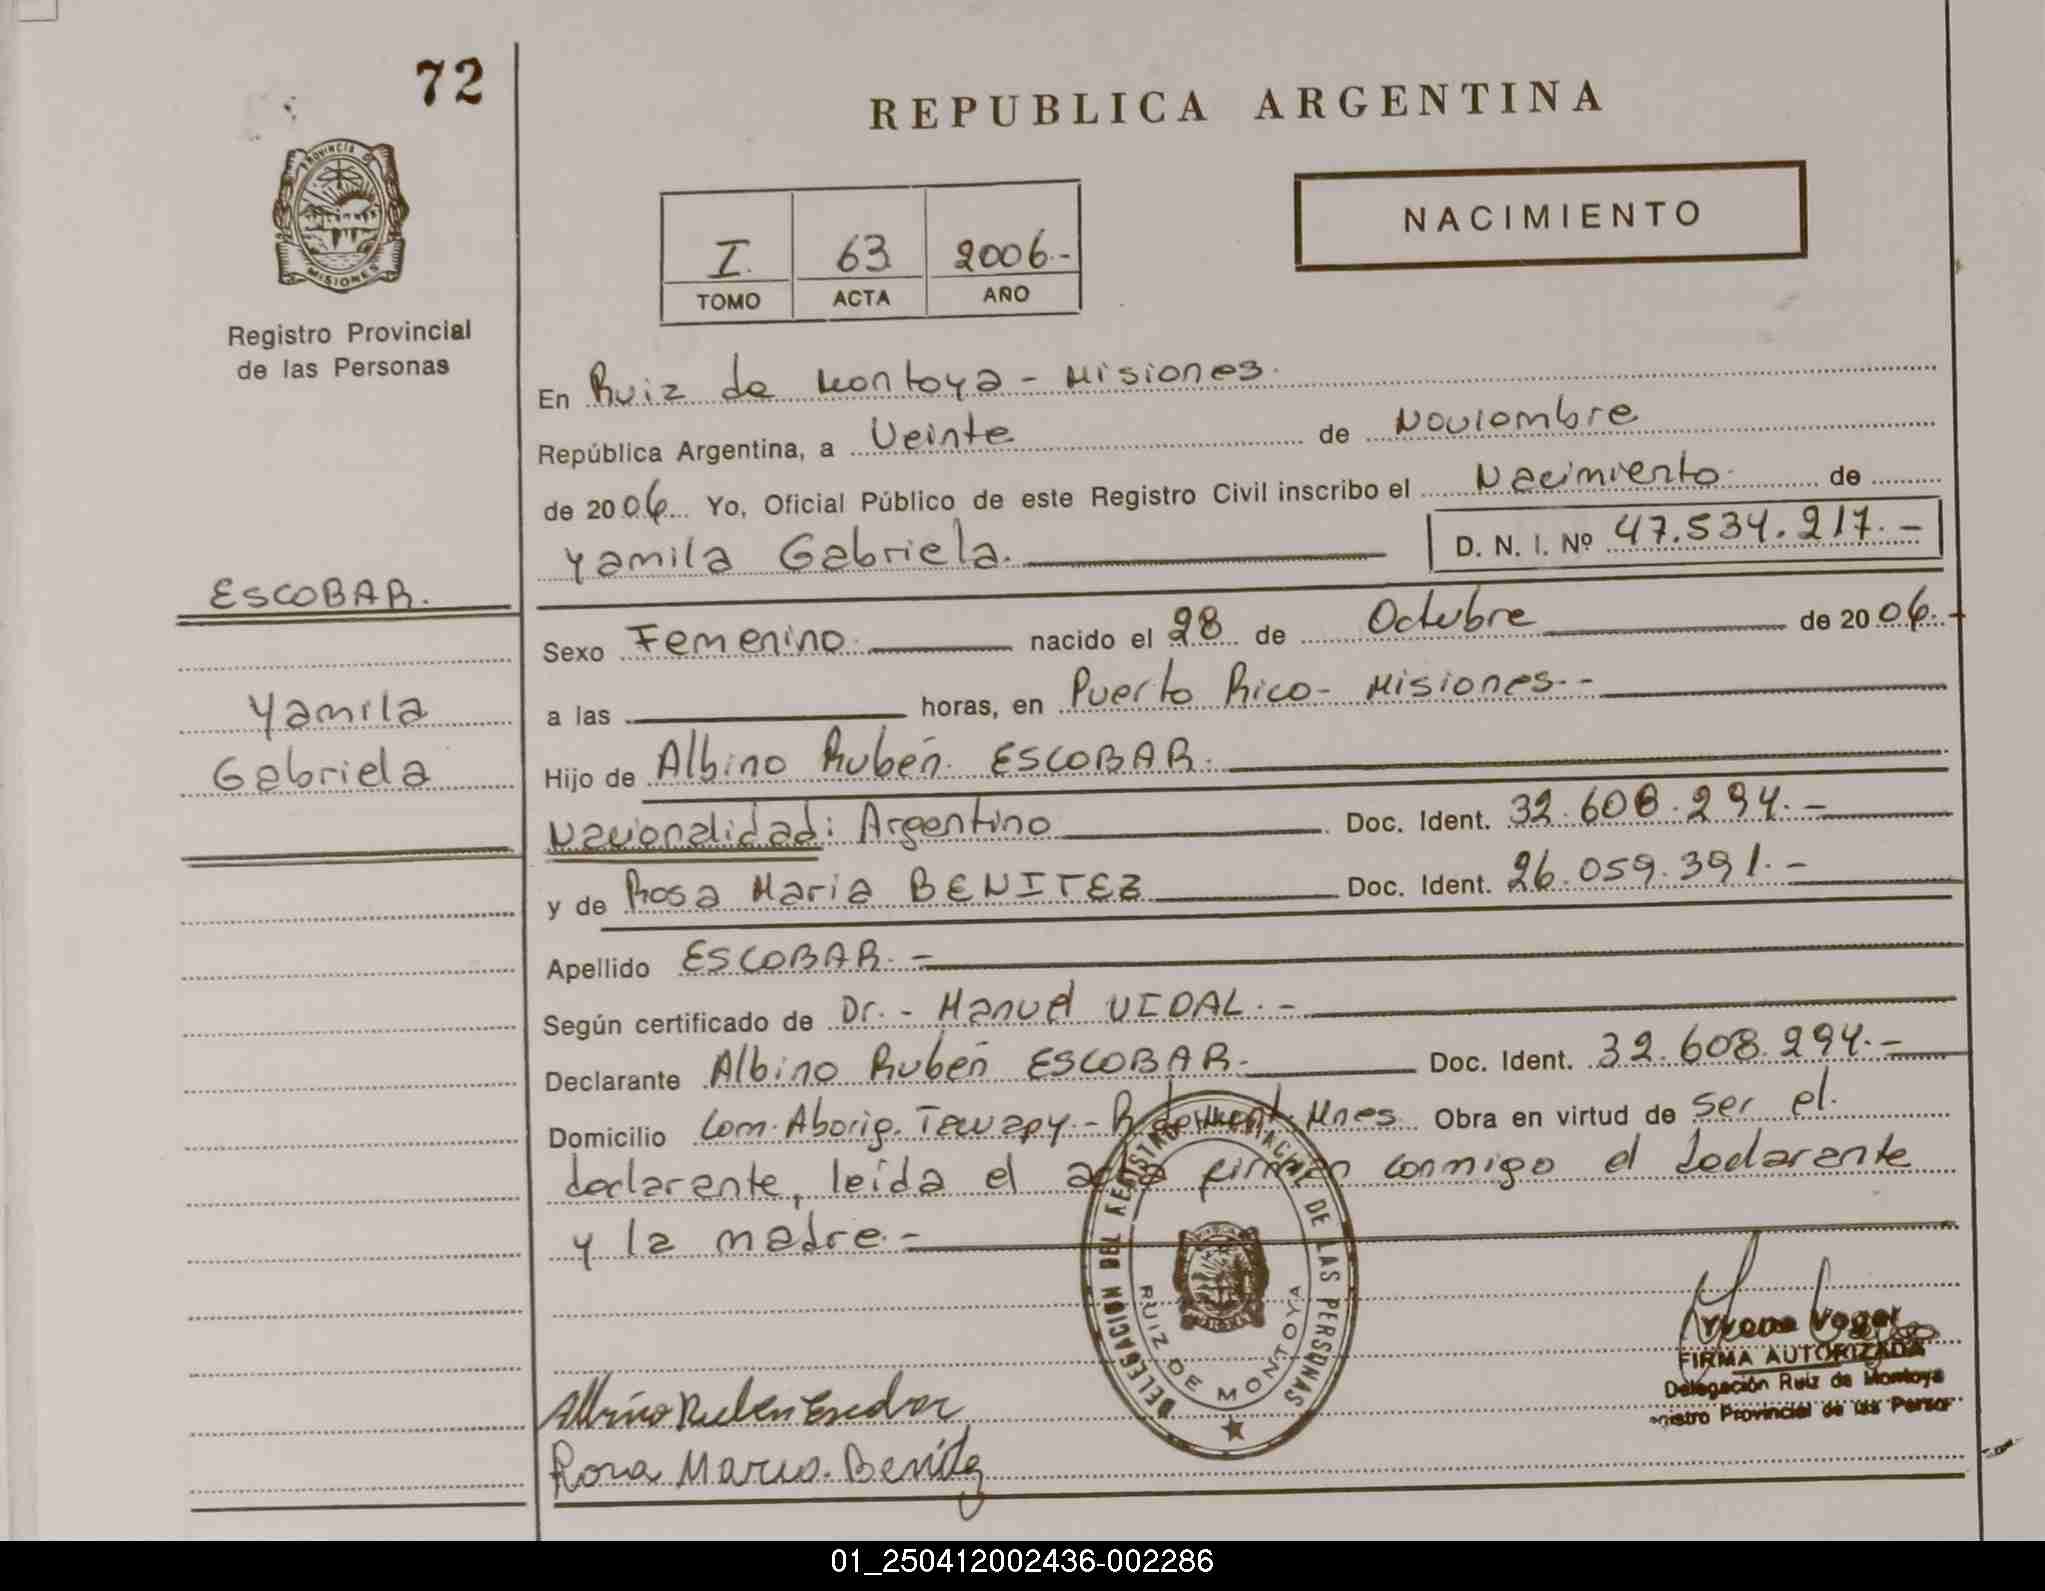 72
REPUBLICA ARGENTINA
PROVINCIA DE
MISIONES
Registro Provincial
de las Personas
NACIMIENTO
I. 63 2006.-
TOMO ACTA AÑO
En Ruiz de Montoya - Misiones.
República Argentina, a Veinte de Noviembre
de 2006 Yo, Oficial Público de este Registro Civil inscribo el Nacimiento de
Yamila Gabriela. D. N. I. Nº 47.534.217.-
ESCOBAR.
Sexo Femenino. nacido el 28 de Octubre de 2006.-
Yamila
a las horas, en Puerto Rico - Misiones.-
Gabriela
Hijo de Albino Rubén ESCOBAR.
Nacionalidad: Argentino Doc. Ident. 32.608.294.-
y de Rosa Maria BENITEZ Doc. Ident. 26.059.391.-
Apellido ESCOBAR.-
Según certificado de Dr.- Manuel VIDAL.-
Declarante Albino Rubén ESCOBAR.- Doc. Ident. 32.608.294.-
Domicilio Com. Aborig. Mnes. Obra en virtud de ser el
declarante, leída el acta firman conmigo el declarante
y la madre.-
DELEGACIÓN DEL REGISTRO DE LAS PERSONAS
RUIZ DE MONTOYA
FIRMA AUTORIZADA
Delegación Ruiz de Montoya
Provincial de las
Albino Ruben Escobar
Rosa Maria Benitez
01_250412002436-002286